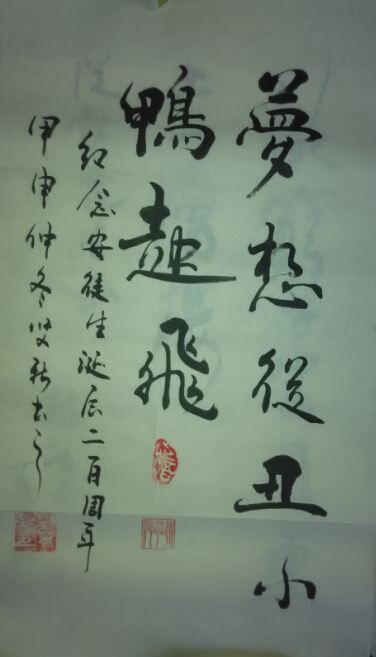 夢想從丑小
鴨起飛
纪念安徒生诞辰二百周年
甲申仲冬